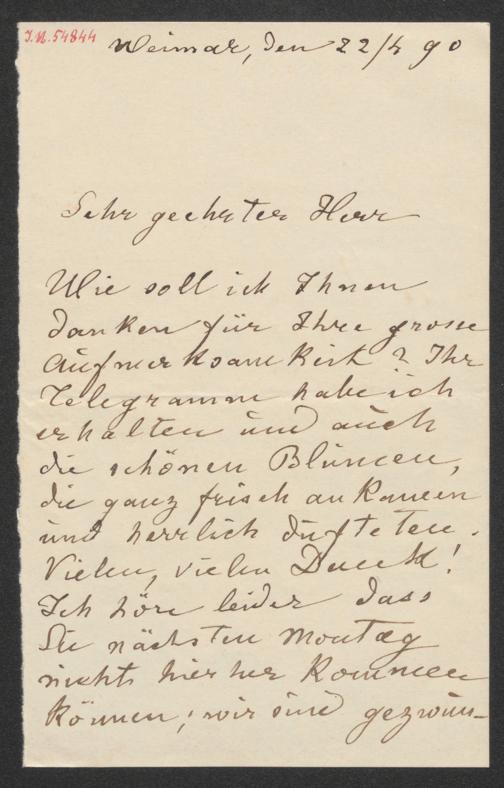 I.N. 54844
Weimar, den 22/4 90
Sehr geehrter Herr
Wie soll ich Ihnen
danken für Ihre grosse
Aufmerksamkeit? Ihr
Telegramm habe ich
erhalten und auch
die schönen Blumen,
die ganz frisch ankamen
und herrlich dufteten.
Vielen, vielen Dank!
Ich höre leider dass
Sie nächsten Montag
nicht hierher kommen
können; wir sind gezwun-